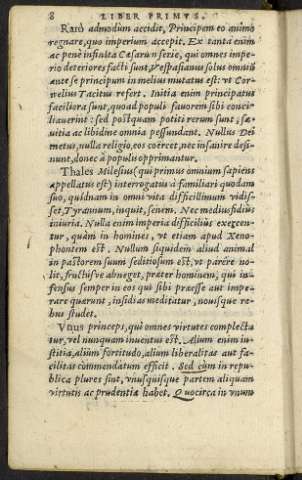 8 LIBER PRIMVS.
Rarò admodum accidit, Principem eo animo
regnare, quo imperium accepit. Ex tanta enim
ac penè infinita Cæsarũ serie, qui omnes impe-
rio deteriores facti sunt, Vespasianus solus omniũ
ante se principum in melius mutatus est: vt Cor-
nelius Tacitus refert. Initia enim principatus
faciliora sunt, quoad populi fauorem sibi conci-
liauerint: sed postquam potiti rerum sunt, sæ-
uitia ac libidine omnia pessundant. Nullus Dei
metus, nulla religio, eos coërcet, nec insanire desi-
nunt, donec à populis opprimantur.
Thales Milesius (qui primus omnium sapiens
appellatus est) interrogatus à familiari quodam
suo, quidnam in omni vita difficillimum vidis-
set, Tyrannum, inquit, senem. Nec mediusfidius
iniuria. Nulla enim imperia difficiliùs exercen-
tur, quàm in homines, vt etiam apud Xeno-
phontem est. Nullum siquidem aliud animal
in pastorem suum seditiosum est, vt parêre no-
lit, fructúsve abneget, præter hominem, qui in-
fensus semper in eos qui sibi præesse aut impe-
rare quærunt, insidias meditatur, nouisque re-
bus studet.
Vnus princeps, qui omnes virtutes complecta
tur, vel nunquam inuentus est. Alium enim iu-
stitia, aliũ fortitudo, alium liberalitas aut fa-
cilitas commendatum efficit. Sed cùm in repu-
blica plures sint, vnusquisque partem aliquam
virtutis ac prudentiæ habet. Quocirca in vnum